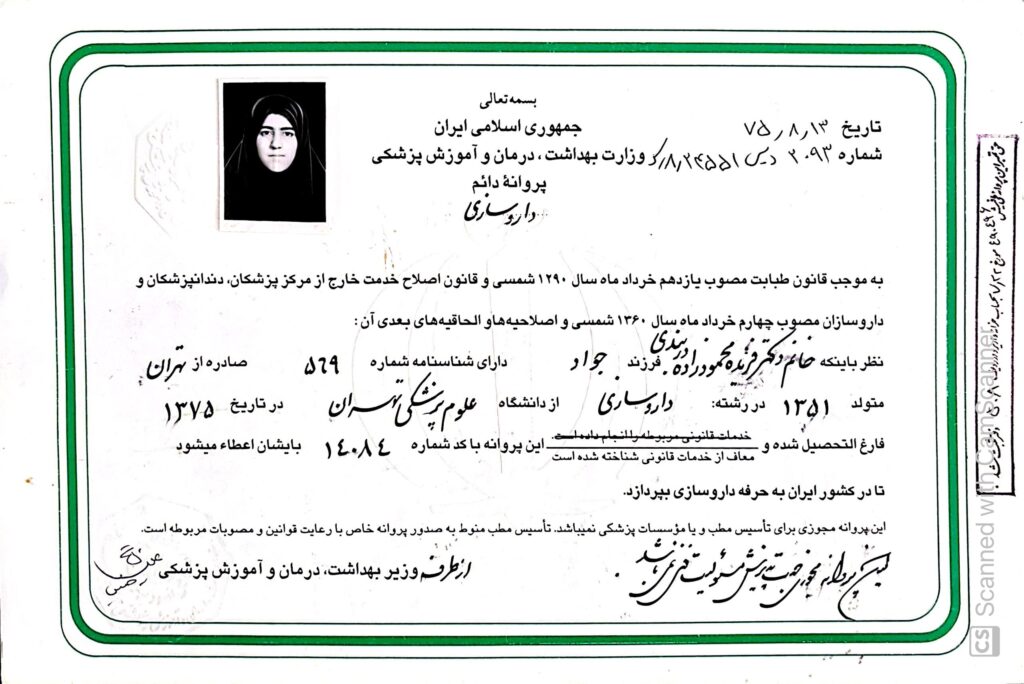 بسمه تعالی
جمهوری اسلامی ایران
وزارت بهداشت، درمان و آموزش پزشکی
پروانهٔ دائم
داروسازی
تاریخ ۷۵٫۸٫۱۳
شماره ۲۰۹۳
به موجب قانون طبابت مصوب یازدهم خرداد ماه سال ۱۲۹۰ شمسی و قانون اصلاح خدمت خارج از مرکز پزشکان، دندانپزشکان و
داروسازان مصوب چهارم خرداد ماه سال ۱۳۶۰ شمسی و اصلاحیه‌ها و الحاقیه‌های بعدی آن:
نظر باینکه خانم دکتر فریده محمودزاده دربندی فرزند جواد دارای شناسنامه شماره ۵۶۹ صادره از تهران
متولد ۱۳۵۱ در رشته: داروسازی از دانشگاه علوم پزشکی تهران در تاریخ ۱۳۷۵
فارغ التحصیل شده و خدمات قانونی مربوطه را انجام داده است این پروانه با کد شماره ۱۴۰۸۴ بایشان اعطاء میشود
معاف از خدمات قانونی شناخته شده است
تا در کشور ایران به حرفه داروسازی بپردازد.
این پروانه مجوزی برای تأسیس مطب و یا مؤسسات پزشکی نمیباشد. تأسیس مطب منوط به صدور پروانه خاص با رعایت قوانین و مصوبات مربوطه است.
این پروانه مجوزی جهت پذیرش مسئولیت فنی نمی‌باشد.
از طرف وزیر بهداشت، درمان و آموزش پزشکی
CS Scanned with CamScanner